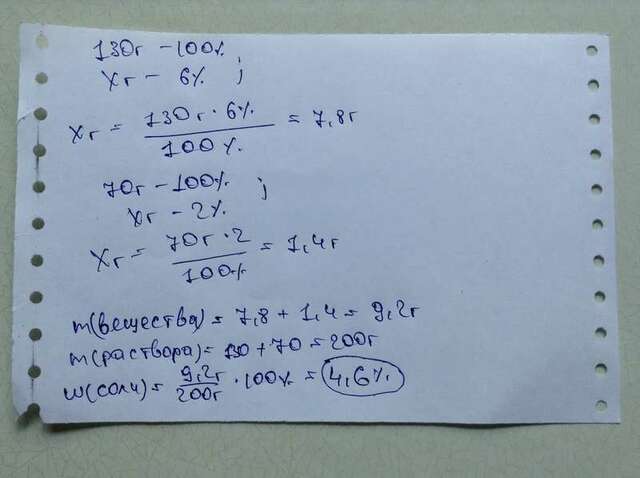 130г - 100%
Xг - 6% ;
Xг = 130г · 6% / 100% = 7,8г
70г - 100% ;
Xг - 2%
Xг = 70г · 2 / 100% = 1,4г
m(вещества) = 7,8 + 1,4 = 9,2г
m(раствора) = 130 + 70 = 200г
w(соли) = 9,2г / 200г · 100% = 4,6%